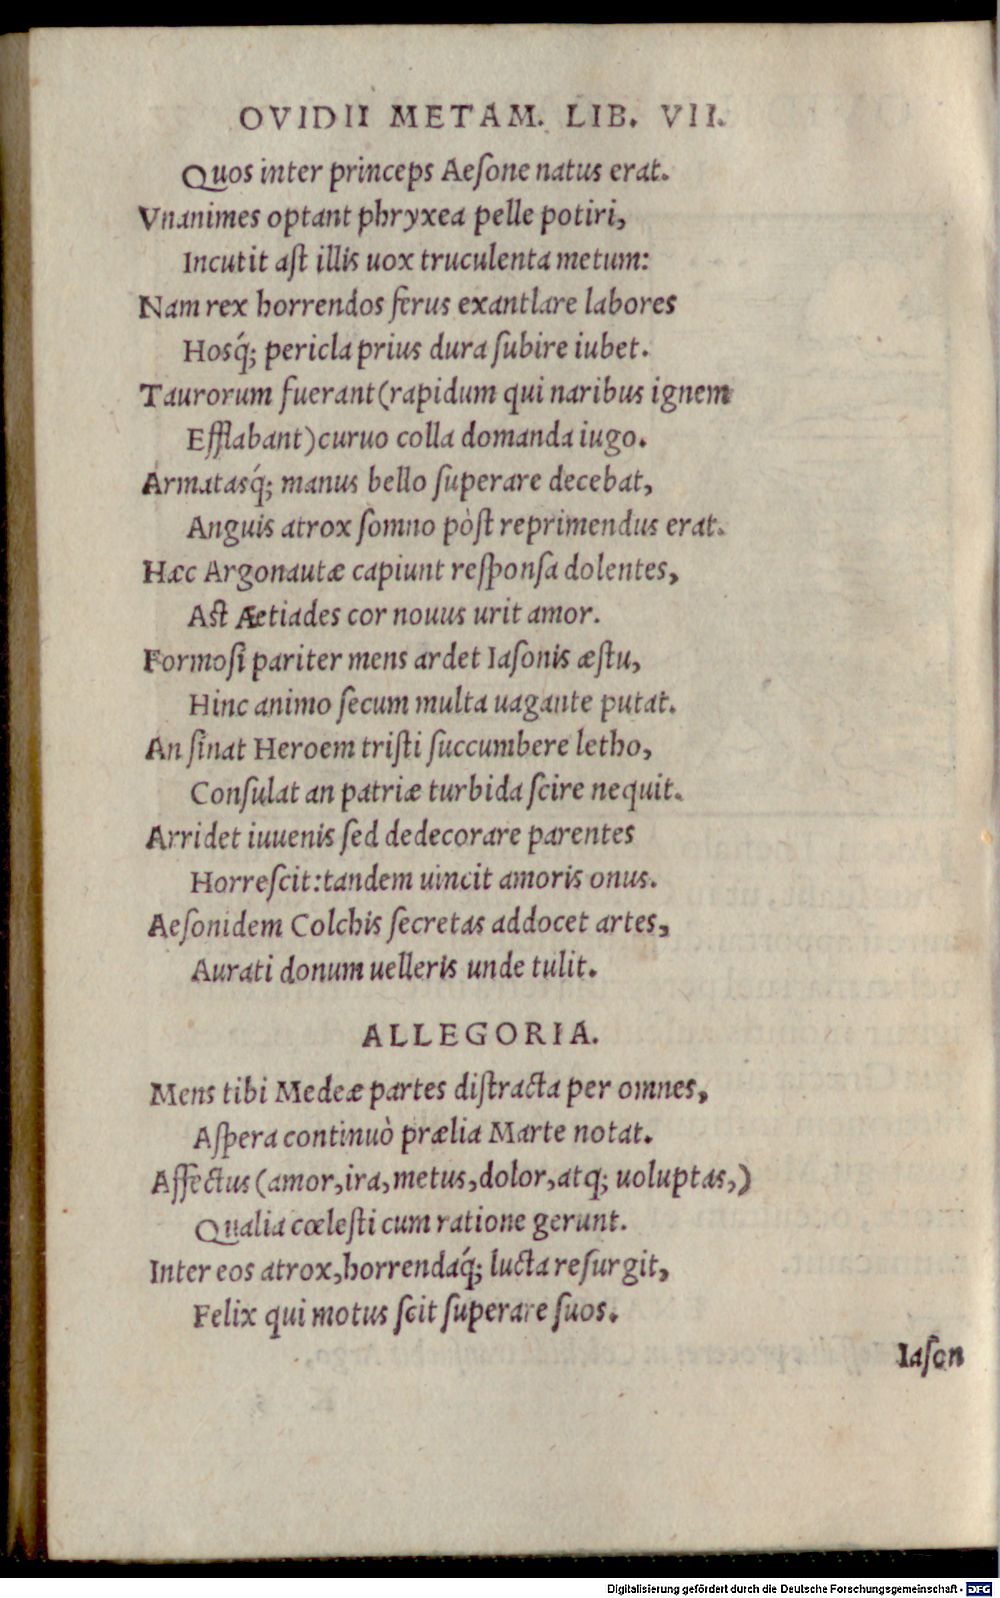 OVIDII METAM. LIB. VII.
Quos inter princeps Aeſone natus erat.
Vnanimes optant phryxea pelle potiri,
Incutit aſt illis uox truculenta metum:
Nam rex horrendos ferus exantlare labores
Hosq́; pericla prius dura ſubire iubet.
Taurorum fuerant (rapidum qui naribus ignem
Efflabant) curuo colla domanda iugo.
Armatasq́; manus bello ſuperare decebat,
Anguis atrox ſomno pòſt reprimendus erat.
Hæc Argonautæ capiunt reſponſa dolentes,
Aſt Æetiades cor nouus urit amor.
Formoſi pariter mens ardet Iaſonis æſtu,
Hinc animo ſecum multa uagante putat.
An ſinat Heroem triſti ſuccumbere letho,
Conſulat an patriæ turbida ſcire nequit.
Arridet iuuenis ſed dedecorare parentes
Horreſcit: tandem uincit amoris onus.
Aeſonidem Colchis ſecretas addocet artes,
Aurati donum uelleris unde tulit.
ALLEGORIA.
Mens tibi Medeæ partes diſtracta per omnes,
Aſpera continuò prælia Marte notat.
Affectus (amor, ira, metus, dolor, atq; uoluptas,)
Qualia cœleſti cum ratione gerunt.
Inter eos atrox, horrendaq́; lucta reſurgit,
Felix qui motus ſcit ſuperare ſuos.
Iaſon
Digitalisierung gefördert durch die Deutsche Forschungsgemeinschaft - DFG